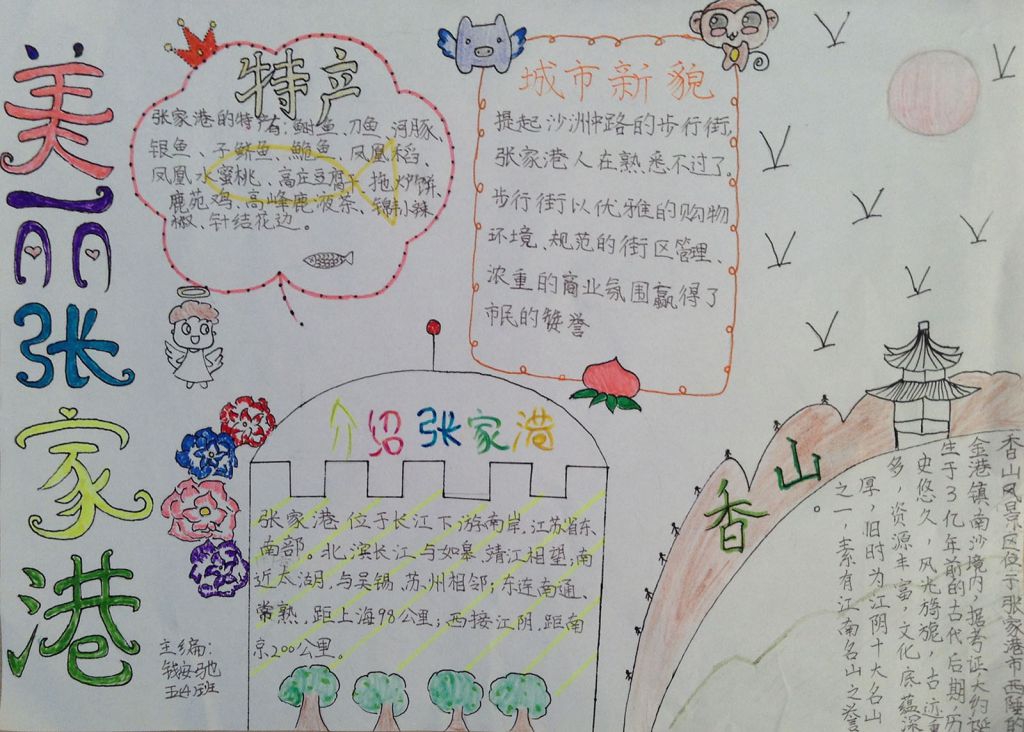 美丽张家港
特产
张家港的特产有:鮰鱼、刀鱼、河豚、
银鱼、子鲚鱼、鮠鱼、凤凰稻、
凤凰水蜜桃、高庄豆腐干、拖炉饼、
鹿苑鸡、高峰鹿液茶、锦丰小辣
椒、针结花边。
城市新貌
提起沙洲中路的步行街,
张家港人在熟悉不过了。
步行街以优雅的购物
环境、规范的街区管理、
浓重的商业氛围赢得了
市民的赞誉
介绍张家港
张家港位于长江下游南岸,江苏省东
南部。北滨长江与如皋、靖江相望;南
近太湖,与吴锡、苏州相邻;东连南通、
常熟,距上海98公里;西接江阴,距南
京200公里。
主编:
五4班
香山
香山风景区位于张家港市西陲的
金港镇南沙境内,据考证大约诞
生于3亿年前的古代后期,历
史悠久,风光旖旎,古迹重
多,资源丰富,文化底蕴深
厚,旧时为江阴十大名山
之一,素有江南名山之誉
。